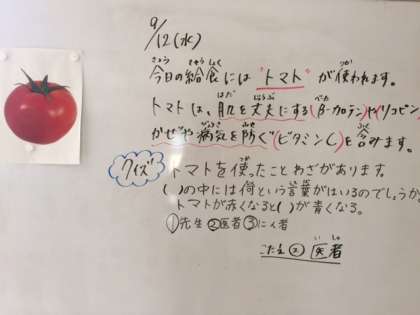 9/12(水)
今日の給食には"トマト"が使われます。
トマトは、肌を丈夫にする(β-カロテン)や(リコピン)
かぜや病気を防ぐ(ビタミンC)を含みます。
クイズ トマトを使ったことわざがあります。
( )の中には何という言葉がはいるのでしょうか。
トマトが赤くなると( )が青くなる。
①先生 ②医者 ③にん者
こたえ ② 医者